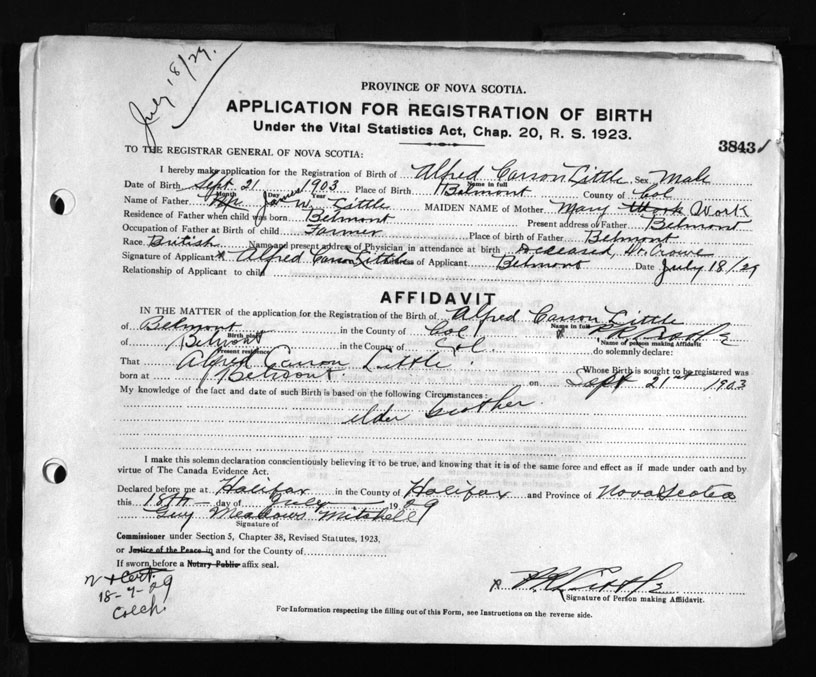 July 18/29.
PROVINCE OF NOVA SCOTIA.
APPLICATION FOR REGISTRATION OF BIRTH
Under the Vital Statistics Act, Chap. 20, R. S. 1923.
3843
TO THE REGISTRAR GENERAL OF NOVA SCOTIA:
I hereby make application for the Registration of Birth of Alfred Carson Little Sex Male
Name in full
Date of Birth Sept. 21 1903 Place of Birth Belmont County of Col
Month Day Year
Name of Father W. Little MAIDEN NAME of Mother Mary Work
Residence of Father when child was born Belmont Present address of Father Belmont
Occupation of Father at Birth of child Farmer Place of birth of Father Belmont
Race British Name and present address of Physician in attendance at birth Deceased, Dr. Crowe
Signature of Applicant Alfred Carson Little Address of Applicant Belmont Date July 18/29
Relationship of Applicant to child
AFFIDAVIT
IN THE MATTER of the application for the Registration of the Birth of Alfred Carson Little
Name in full
of Belmont in the County of Col.
Birth place Name of person making Affidavit
of Belmont in the County of Col. do solemnly declare:
Present residence
That Alfred Carson Little Whose Birth is sought to be registered was
born at Belmont. on Sept 21st 1903
My knowledge of the fact and date of such Birth is based on the following Circumstances:
elder brother.
I make this solemn declaration conscientiously believing it to be true, and knowing that it is of the same force and effect as if made under oath and by
virtue of The Canada Evidence Act.
Declared before me at Halifax in the County of Halifax and Province of Nova Scotia
this 18th day of July 1929
Guy Meadows Mitchell
Signature of
Commissioner under Section 5, Chapter 38, Revised Statutes, 1923,
or Justice of the Peace in and for the County of
If sworn before a Notary Public affix seal.
18-7-29
Colch.
Signature of Person making Affidavit.
For Information respecting the filling out of this Form, see Instructions on the reverse side.